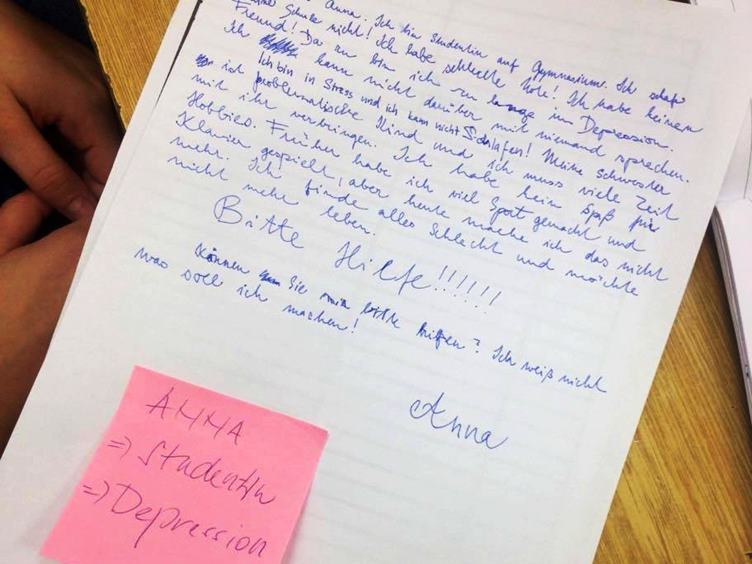 Anna. Ich bin Studentin auf Gymnasium. Ich
meine Schule nicht! Ich habe schlechte Note! Ich habe keinen
Freund! Da zu bin ich zu lange im Depression.
Ich kann nicht darüber mit niemand sprechen.
Ich bin in Stress und ich kann nicht Schlafen! Meine Schwester
ist problematische Kind und ich muss viele Zeit
mit ihr verbringen. Ich habe kein Spaß für
Hobbies. Früher habe ich viel Sport gemacht und
Klavier gespielt, aber heute mache ich das nicht
mehr. Ich finde alles Schlecht und möchte
nicht mehr leben.
Bitte Hilfe!!!!!!
Können Sie mir bitte helfen? Ich weiß nicht
was soll ich machen!
Anna
ANNA
=> Studentin
=> Depression